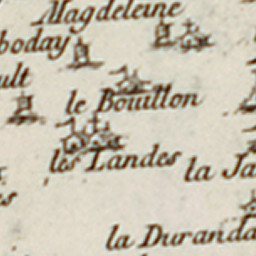 Magdeleine
boday
ult
le Bouillon
les Landes
la Ja
es
la Duranda